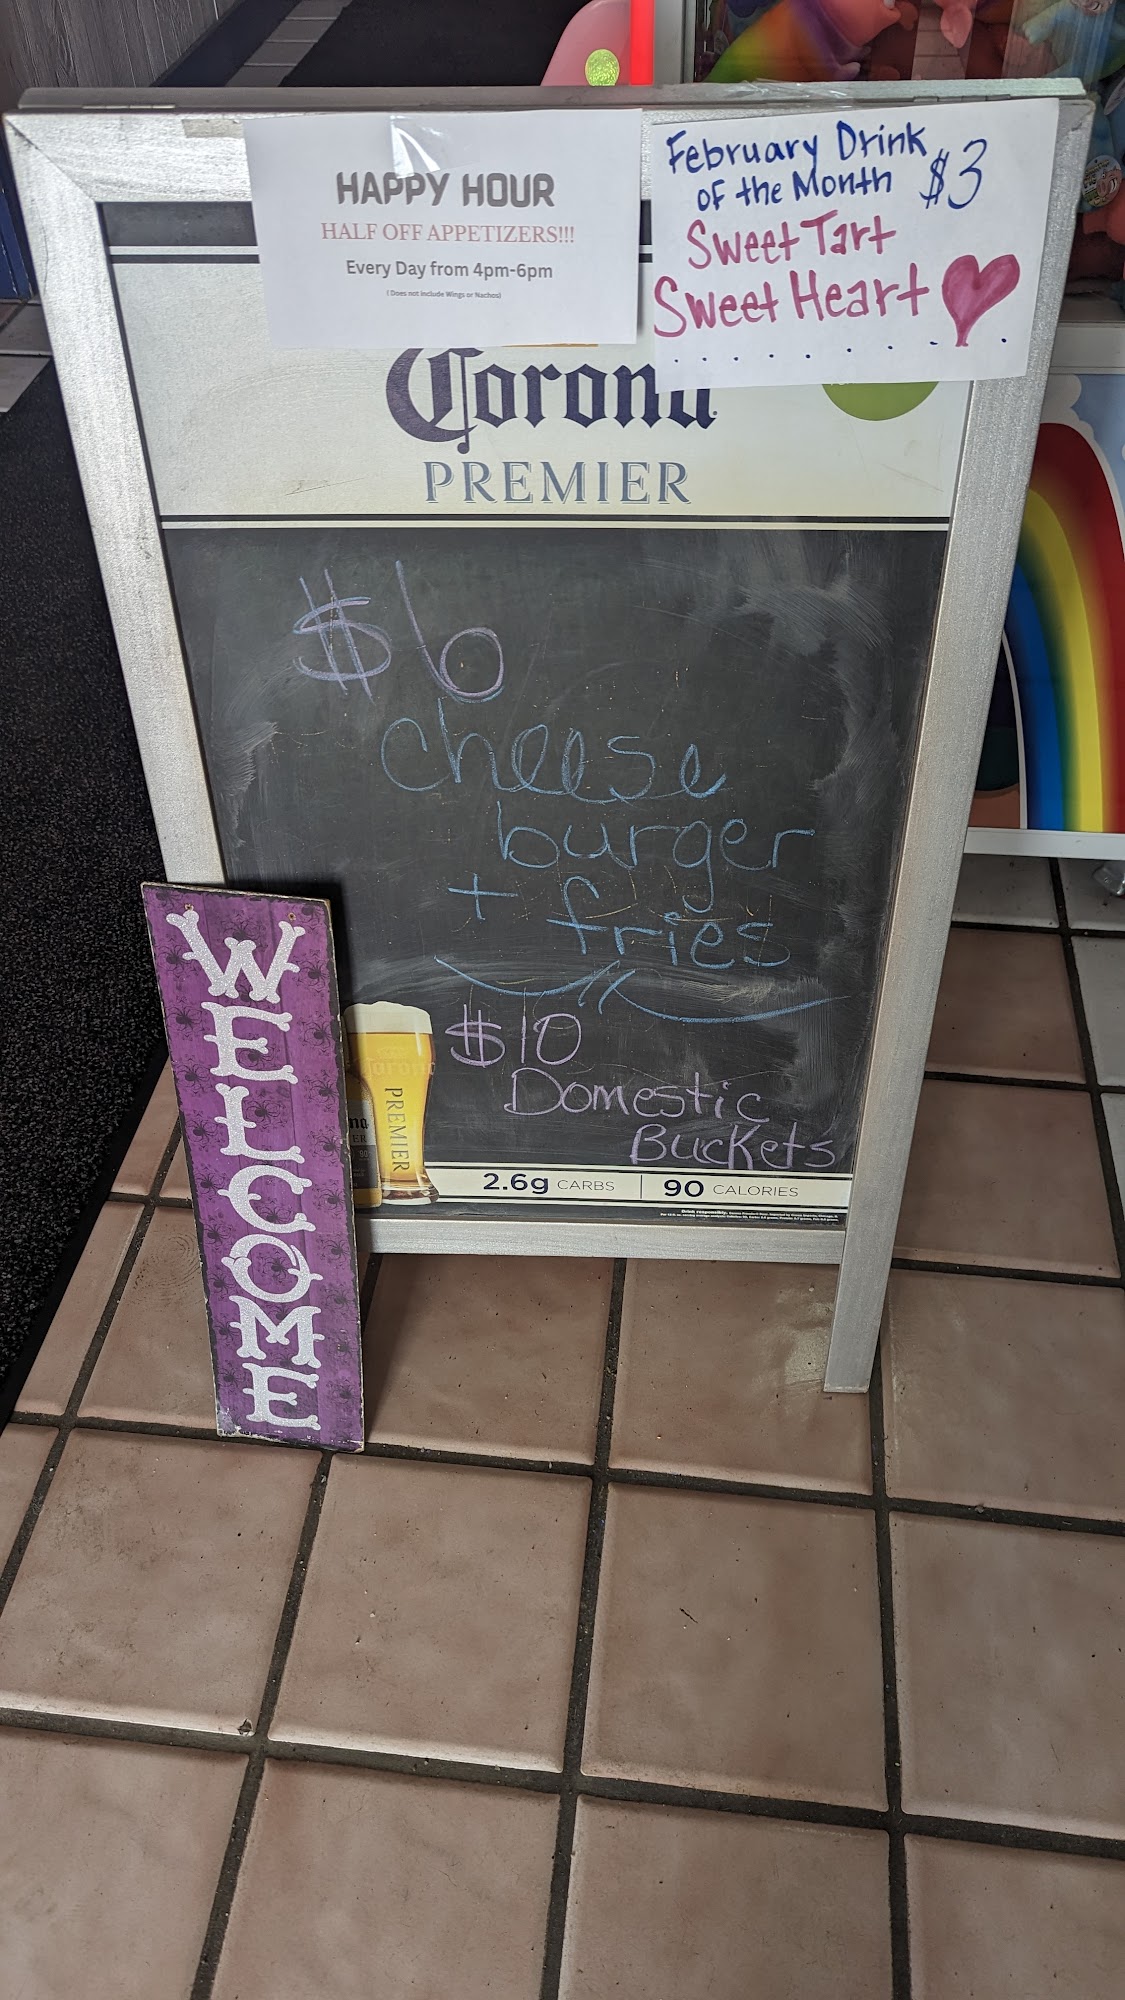 HAPPY HOUR
HALF OFF APPETIZERS!!!
Every Day from 4pm-6pm
( Does not include Wings or Nachos)
February Drink
of the Month $3
Sweet Tart
Sweet Heart
Corona
PREMIER
$6
cheese
burger
+ fries
$10
Domestic
Buckets
WELCOME
Corona
PREMIER
2.6g CARBS | 90 CALORIES
Drink responsibly.